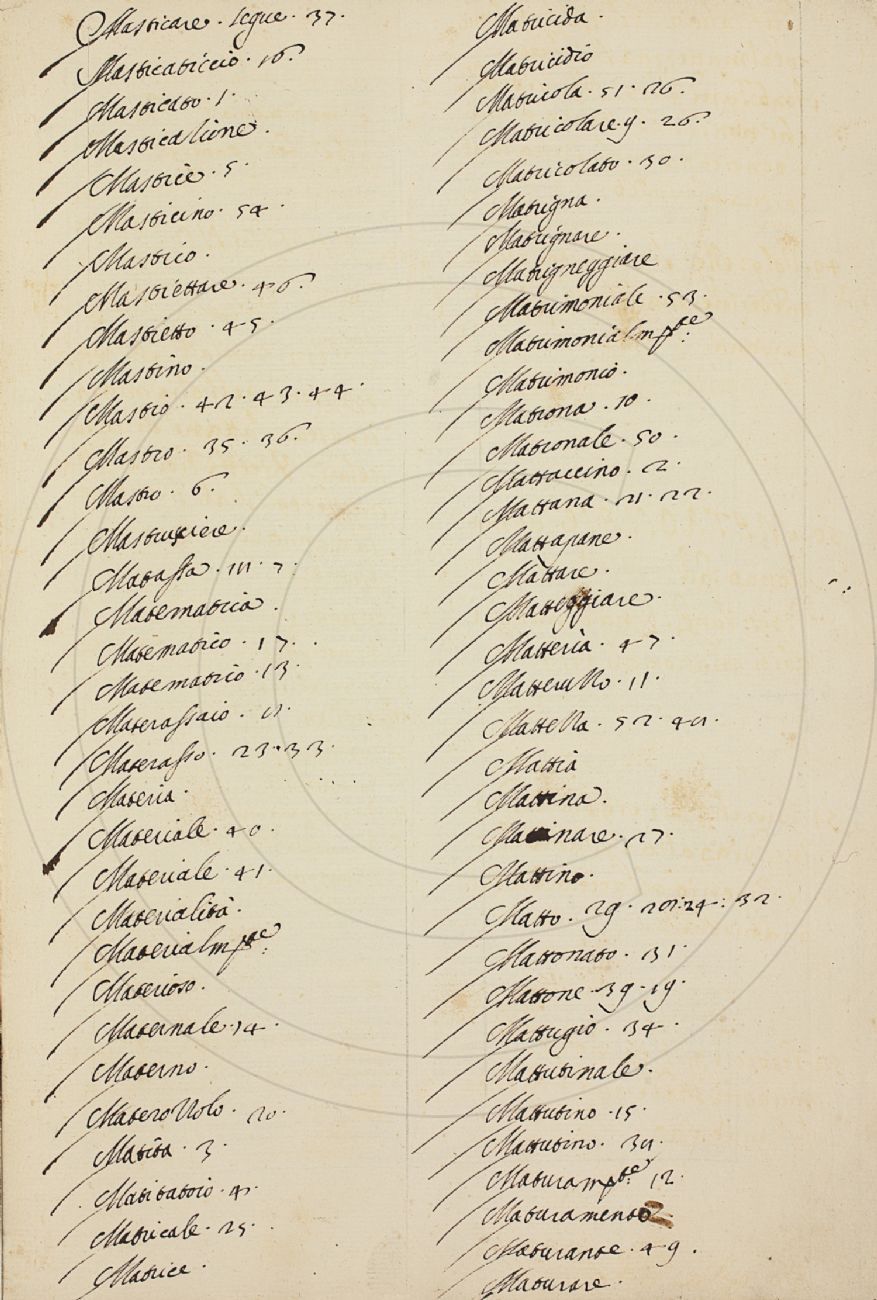 Masticare. segue. 37.
Masticaticcio. 16.
Masticato. 1.
Masticazione.
Mastice. 5.
Masticino. 54.
Mastico.
Mastiettare. 46.
Mastietto. 45.
Mastino.
Mastio. 42. 43. 44.
Mastro. 35. 36.
Mastro. 6.
Mastrupiere.
Matassa. 7.
Matematica.
Matematico. 17.
Matematico. 13.
Materassaio.
Materasso. 23. 33.
Materia.
Materiale. 40.
Materiale. 41.
Materialità.
Materialmte:
Materioso.
Maternale. 14.
Materno.
Materozzolo. 20.
Matita. 3.
Matitatoio. 4.
Matricale. 25.
Matrice.
Matricida.
Matricidio
Matricola. 51. 26.
Matricolare. 9. 26.
Matricolato. 30.
Matrigna.
Matrignare.
Matrigneggiare
Matrimoniale. 53.
Matrimonialmte:
Matrimonio.
Matrona. 10.
Matronale. 50.
Mattaccino. 2.
Mattana. 21. 22.
Mattapane.
Mattare.
Matteggiare.
Matteria. 47.
Matterullo. 11.
Mattezza. 52.
Mattia
Mattina.
Mattinare. 27.
Mattino.
Matto. 29. 24. 32.
Mattonato. 31.
Mattone. 39. 19.
Mattugio. 34.
Mattutinale.
Mattutino. 15.
Mattutino.
Maturamte: 12.
Maturamento
Maturante. 49.
Maturare.